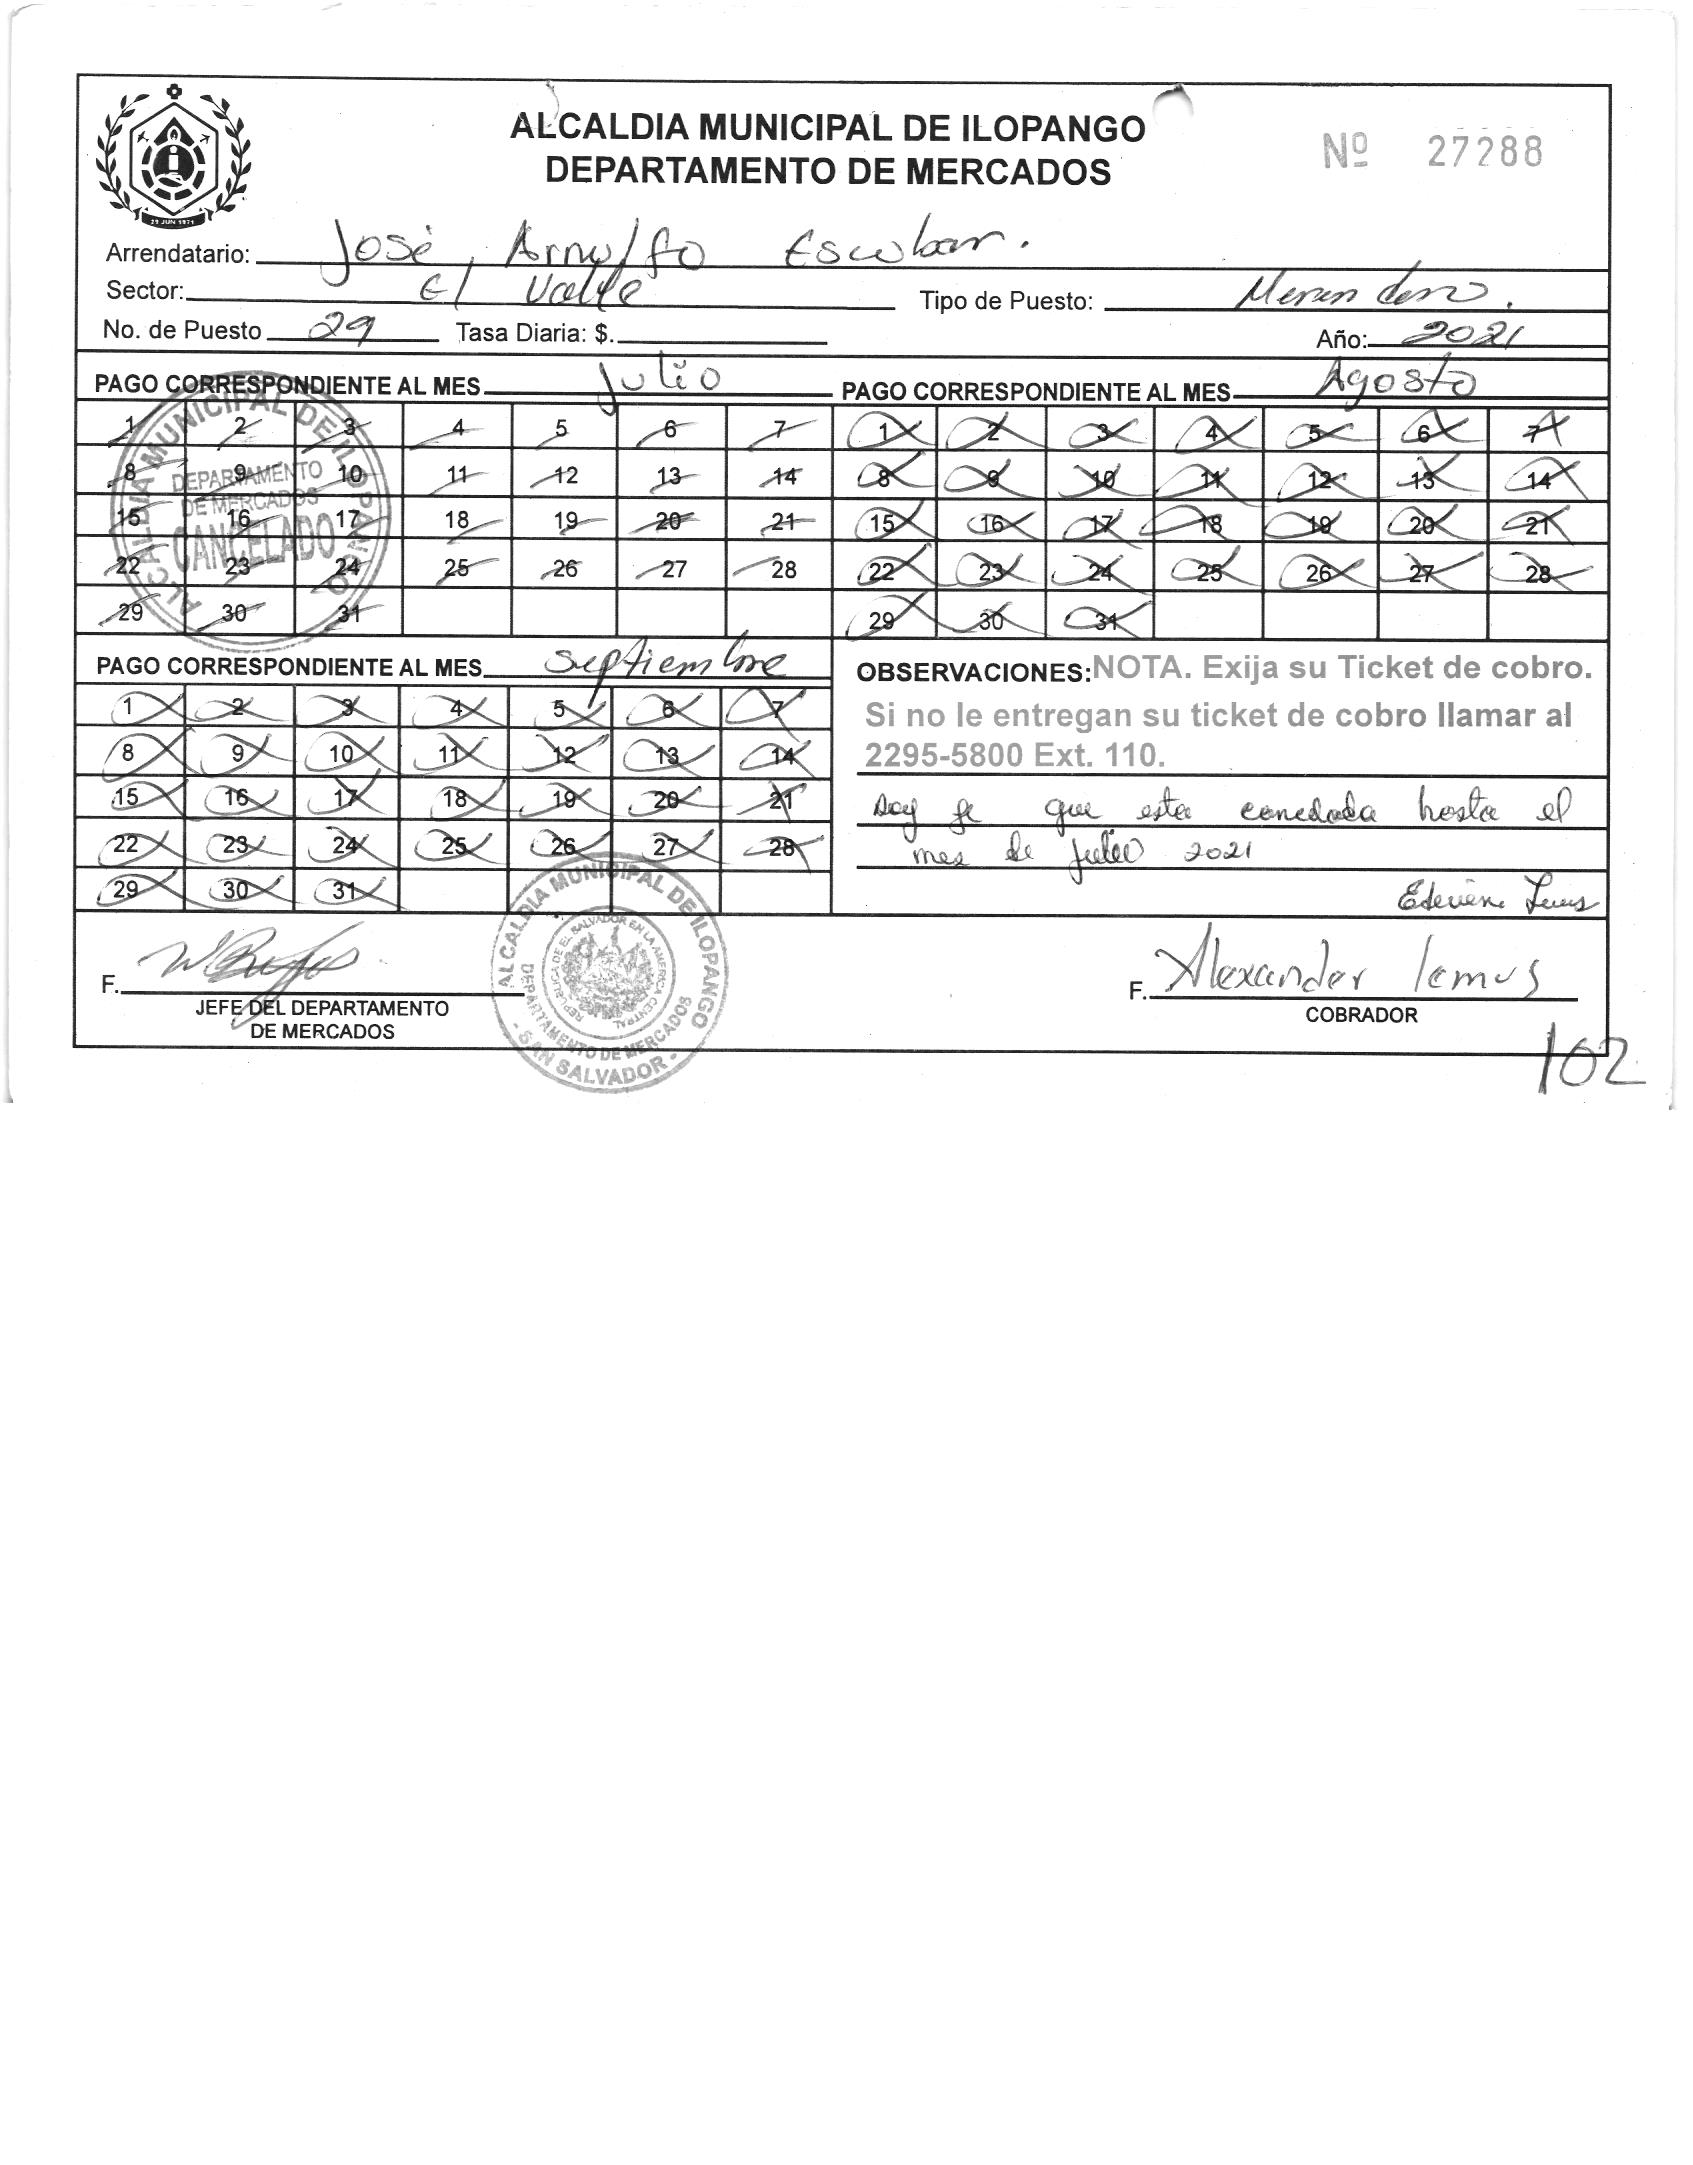 ALCALDIA MUNICIPAL DE ILOPANGO
DEPARTAMENTO DE MERCADOS
Nº 27288
29 JUN 1971
Arrendatario: José Arnulfo Escobar.
Sector: El Valle
Tipo de Puesto: Merendero.
No. de Puesto 29 Tasa Diaria: $.
Año: 2021
PAGO CORRESPONDIENTE AL MES Julio
1 2 3 4 5 6 7
8 9 10 11 12 13 14
15 16 17 18 19 20 21
22 23 24 25 26 27 28
29 30 31
ALCALDIA MUNICIPAL DE ILOPANGO
DEPARTAMENTO
DE MERCADOS
CANCELADO
PAGO CORRESPONDIENTE AL MES Agosto
1 2 3 4 5 6 7
8 9 10 11 12 13 14
15 16 17 18 19 20 21
22 23 24 25 26 27 28
29 30 31
PAGO CORRESPONDIENTE AL MES Septiembre
1 2 3 4 5 6 7
8 9 10 11 12 13 14
15 16 17 18 19 20 21
22 23 24 25 26 27 28
29 30 31
OBSERVACIONES: NOTA. Exija su Ticket de cobro.
Si no le entregan su ticket de cobro llamar al
2295-5800 Ext. 110.
Doy fe que esta hasta el
mes de Julio 2021
F.
JEFE DEL DEPARTAMENTO
DE MERCADOS
ALCALDIA MUNICIPAL DE ILOPANGO
DEPARTAMENTO DE MERCADOS
REPUBLICA DE EL SALVADOR EN LA AMERICA CENTRAL
- SAN SALVADOR -
F. Alexander Lemus
COBRADOR
102